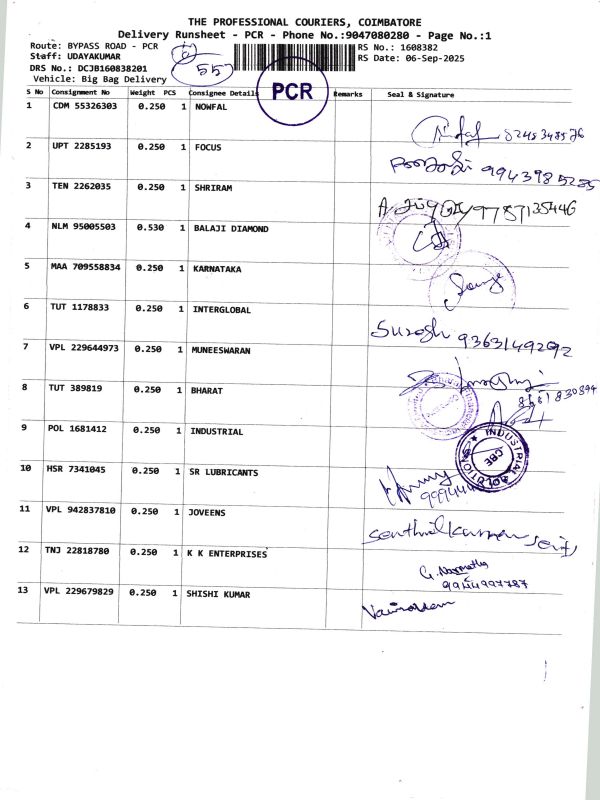 THE PROFESSIONAL COURIERS, COIMBATORE
Delivery Runsheet - PCR - Phone No.:9047080280 - Page No.:1
Route: BYPASS ROAD - PCR RS No.: 1608382
Staff: UDAYAKUMAR RS Date: 06-Sep-2025
DRS No.: DCJB160838201 557
Vehicle: Big Bag Delivery PCR
S No Consignment No Weight PCS Consignee Details Remarks Seal & Signature
1 CDM 55326303 0.250 1 NOWFAL
2 UPT 2285193 0.250 1 FOCUS 9943985285
3 TEN 2262035 0.250 1 SHRIRAM
4 NLM 95005503 0.530 1 BALAJI DIAMOND
5 MAA 709558834 0.250 1 KARNATAKA
6 TUT 1178833 0.250 1 INTERGLOBAL Suresh 9363149292
7 VPL 229644973 0.250 1 MUNEESWARAN
8 TUT 389819 0.250 1 BHARAT
9 POL 1681412 0.250 1 INDUSTRIAL INDUSTRIAL SOLUTIONS CBE
10 HSR 7341045 0.250 1 SR LUBRICANTS
11 VPL 942837810 0.250 1 JOVEENS
12 TNJ 22818780 0.250 1 K K ENTERPRISES
13 VPL 229679829 0.250 1 SHISHI KUMAR